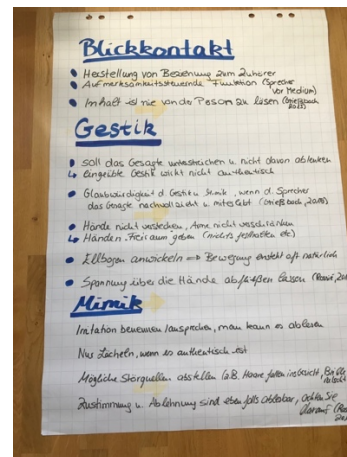 Blickkontakt
Herstellung von Beziehung zum Zuhörer
Aufmerksamkeitssteuernde Funktion (Sprecher
vor Medium)
Inhalt ist nie von der Person zu lösen
Gestik
soll das Gesagte unterstreichen u. nicht davon ablenken
↳ eingeübte Gestik wirkt nicht authentisch
Glaubwürdigkeit d. Gestik u. Mimik, wenn d. Sprecher
das Gesagte nachvollzieht u. miterlebt
Hände nicht verstecken, Arme nicht verschränken
↳ Händen Freiraum geben (nichts festhalten etc)
Ellbogen anwinkeln => Bewegung entsteht oft natürlich
Spannung über die Hände abfließen lassen
Mimik
Irritation benennen/ansprechen, man kann es ablesen
Nur Lächeln, wenn es authentisch ist
Mögliche Störquellen abstellen (z.B. Haare fallen ins Gesicht,
Zustimmung u. Ablehnung sind ebenfalls ablesbar, achten Sie
darauf